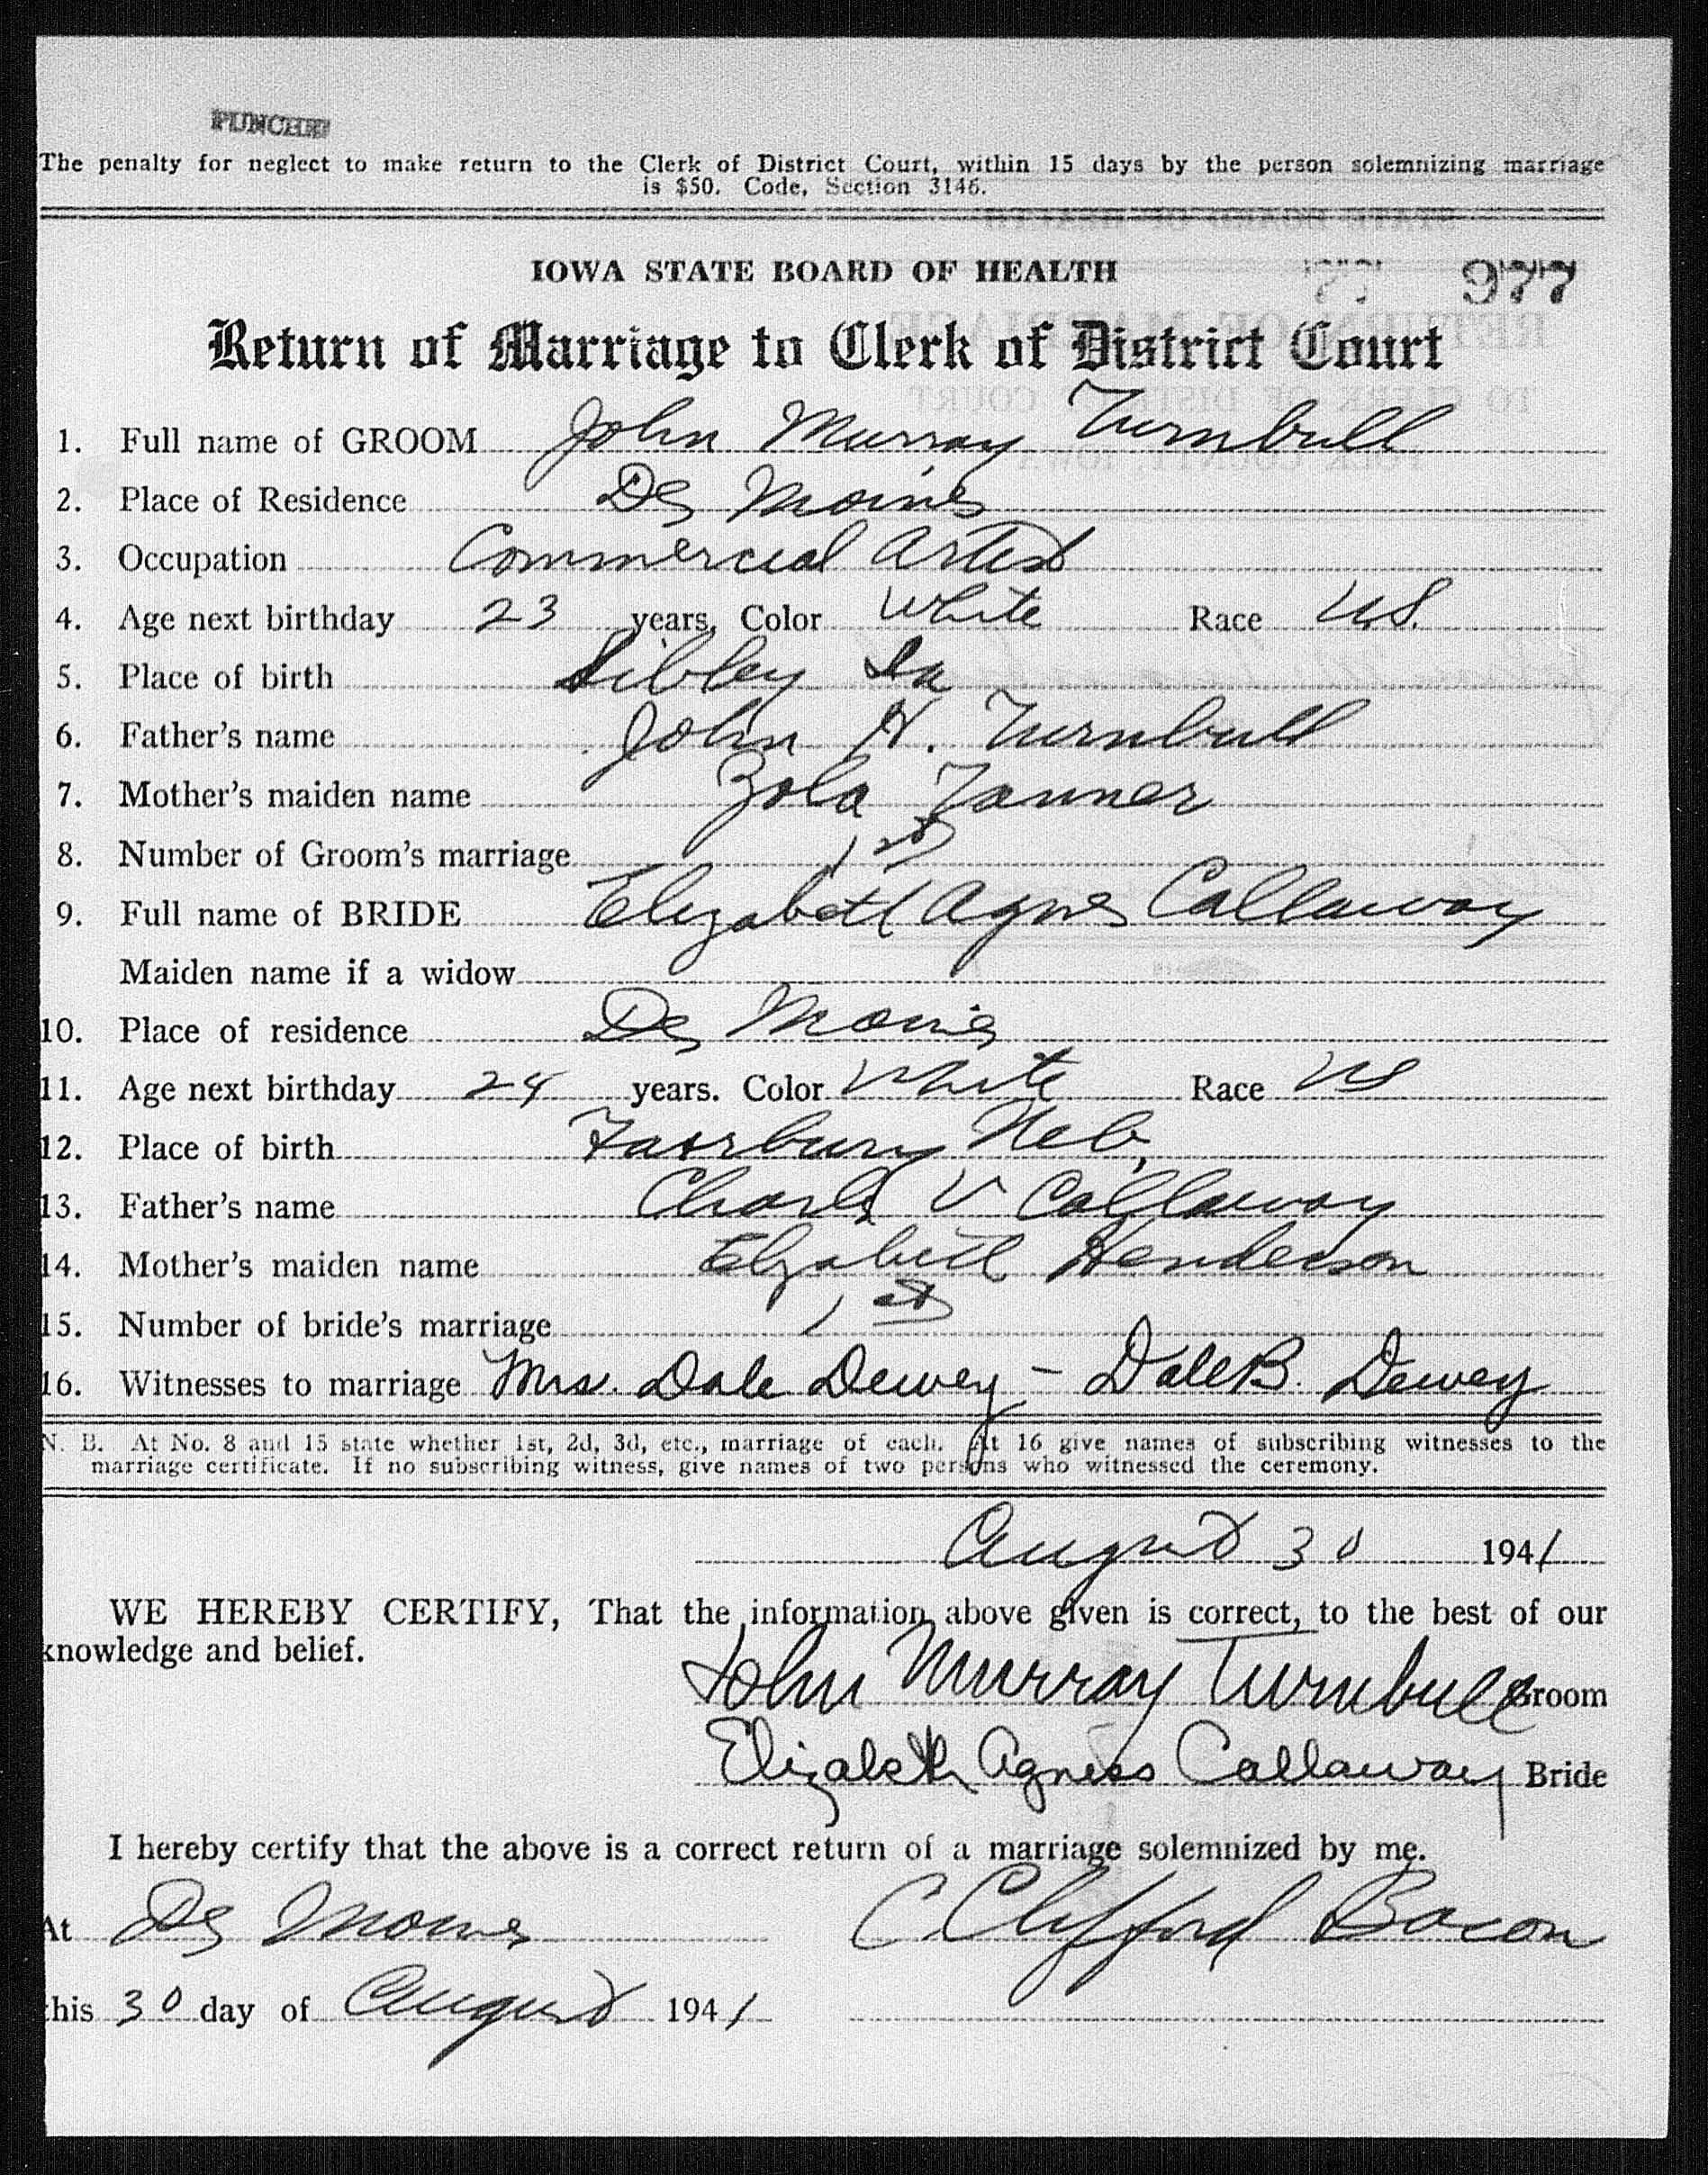 PUNCHED
The penalty for neglect to make return to the Clerk of District Court, within 15 days by the person solemnizing marriage
is $50. Code, Section 3146.
IOWA STATE BOARD OF HEALTH
977
Return of Marriage to Clerk of District Court
1. Full name of GROOM John Murray Turnbull
2. Place of Residence Des Moines
3. Occupation Commercial Artist
4. Age next birthday 23 years, Color White Race U.S.
5. Place of birth Sibley Ia
6. Father's name John H. Turnbull
7. Mother's maiden name Zola Tanner
8. Number of Groom's marriage 1st
9. Full name of BRIDE Elizabeth Agnes Callaway
Maiden name if a widow
10. Place of residence Des Moines
11. Age next birthday 24 years. Color White Race US
12. Place of birth Fairbury Neb.
13. Father's name Charles V Callaway
14. Mother's maiden name Elizabeth Henderson
15. Number of bride's marriage 1st
16. Witnesses to marriage Mrs. Dale Dewey - Dale B. Dewey
N. B. At No. 8 and 15 state whether 1st, 2d, 3d, etc., marriage of each. At 16 give names of subscribing witnesses to the
marriage certificate. If no subscribing witness, give names of two persons who witnessed the ceremony.
August 30 1941
WE HEREBY CERTIFY, That the information above given is correct, to the best of our
knowledge and belief.
John Murray Turnbull Groom
Elizabeth Agness Callaway Bride
I hereby certify that the above is a correct return of a marriage solemnized by me.
At Des Moines C Clifford Bacon
this 30 day of August 1941